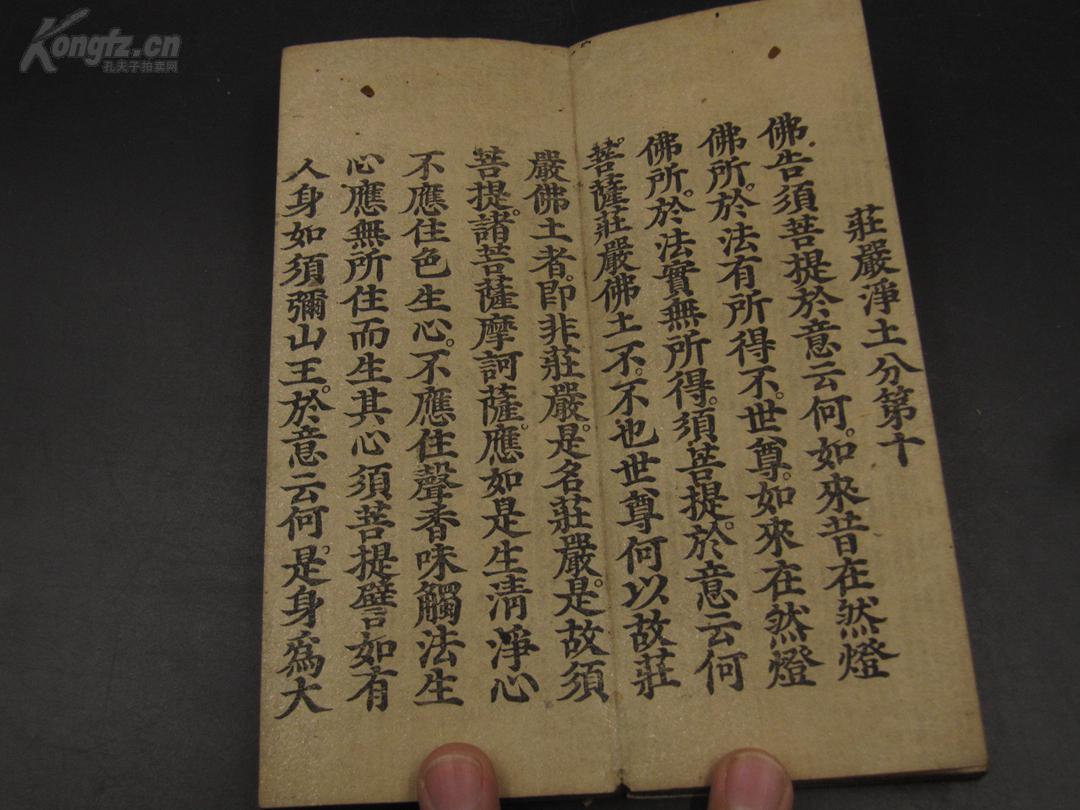 Kongfz.cn
孔夫子拍卖网
莊嚴淨土分第十
佛告須菩提於意云何。如來昔在然燈
佛所。於法有所得不。世尊。如來在然燈
佛所。於法實無所得。須菩提。於意云何
菩薩莊嚴佛土不。不也世尊何以故莊
嚴佛土者。即非莊嚴。是名莊嚴。是故須
菩提。諸菩薩摩訶薩。應如是生清淨心
不應住色生心。不應住聲香味觸法生
心應無所住而生其心須菩提譬如有
人身如須彌山王。於意云何。是身為大